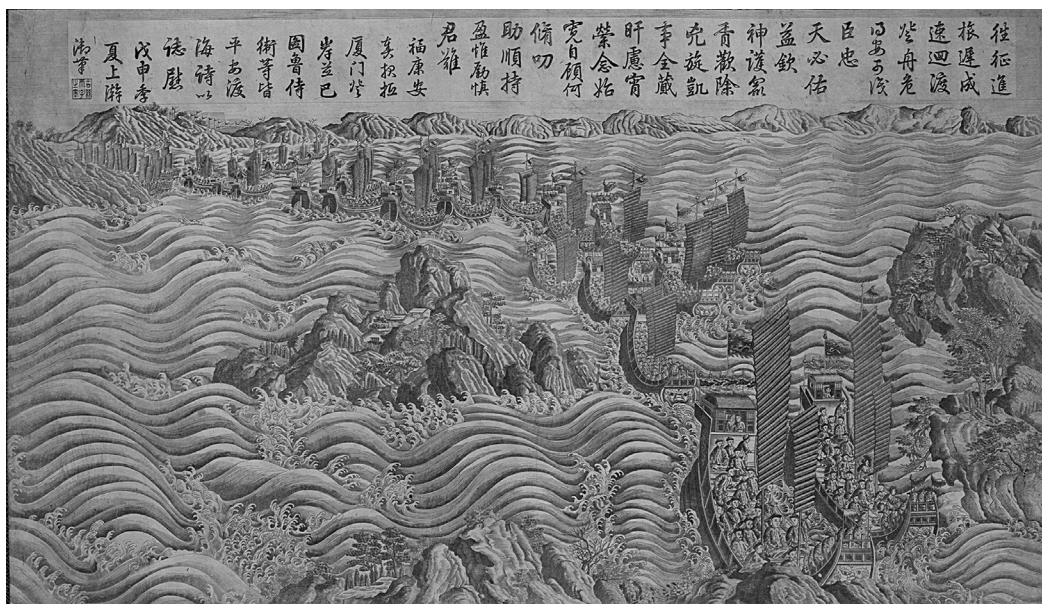 往征進
旅遲成
速迴渡
登舟危
得安可識
臣忠
天必佑
益欽
神護眾
胥歡除
兇旋凱
事全蕆
旰慮宵
縈念始
寬自顧何
脩叨
助順持
盈惟勵慎
君難
福康安
奏報抵
厦门登
岸並巴
圖魯侍
衛等皆
平安渡
海詩以
誌慰
戊申季
夏上澣
御筆